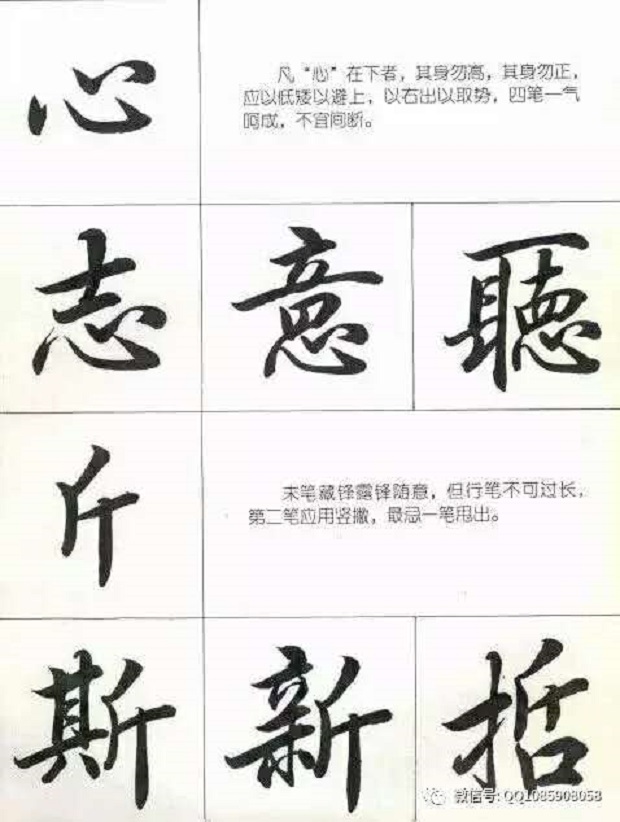 心
凡“心”在下者，其身勿高，其身勿正，
应以低矮以避上，以右出以取势，四笔一气
呵成，不宜间断。
志 意 聽
斤
末笔藏锋露锋随意，但行笔不可过长，
第二笔应用竖撇，最忌一笔甩出。
斯 新 哲
微信号: QQ1085908058